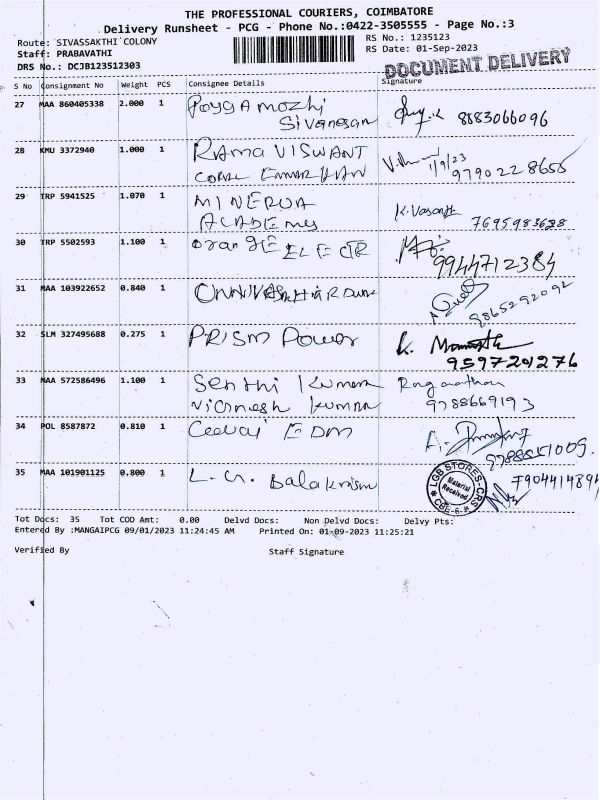 THE PROFESSIONAL COURIERS, COIMBATORE
Delivery Runsheet - PCG - Phone No.:0422-3505555 - Page No.:3
Route: SIVASSAKTHI COLONY
RS No.: 1235123
Staff: PRABAVATHI
RS Date: 01-Sep-2023
DRS No.: DCJB123512303
DOCUMENT DELIVERY
S No Consignment No Weight PCS Consignee Details Signature
27 MAA 860405338 2.000 1 Poyyamozhi
Sivanesan 8883066096
28 KMU 3372940 1.000 1 RAMA VISWANT
1/9/23
9790228655
29 TRP 5941525 1.070 1 MINERVA K.Vasanth
ACADEMy 7695983628
30 TRP 5502593 1.100 1 OrangE ELECTR
9944712384
31 MAA 103922652 0.840 1
9865292092
32 SLM 327495688 0.275 1 PRISM Power K.
9597201276
33 MAA 572586496 1.100 1 Senthi Kumar Ranganathan
Vignesh Kumar 9788669193
34 POL 8587872 0.810 1 EDM A.
35 MAA 101901125 0.800 1 L.G. Balakrism
LGB STORES-CRS
Material
Received
CBE-6
7904414894
Tot Docs: 35 Tot COD Amt: 0.00 Delvd Docs: Non Delvd Docs: Delvy Pts:
Entered By :MANGAIPCG 09/01/2023 11:24:45 AM Printed On: 01-09-2023 11:25:21
Verified By Staff Signature